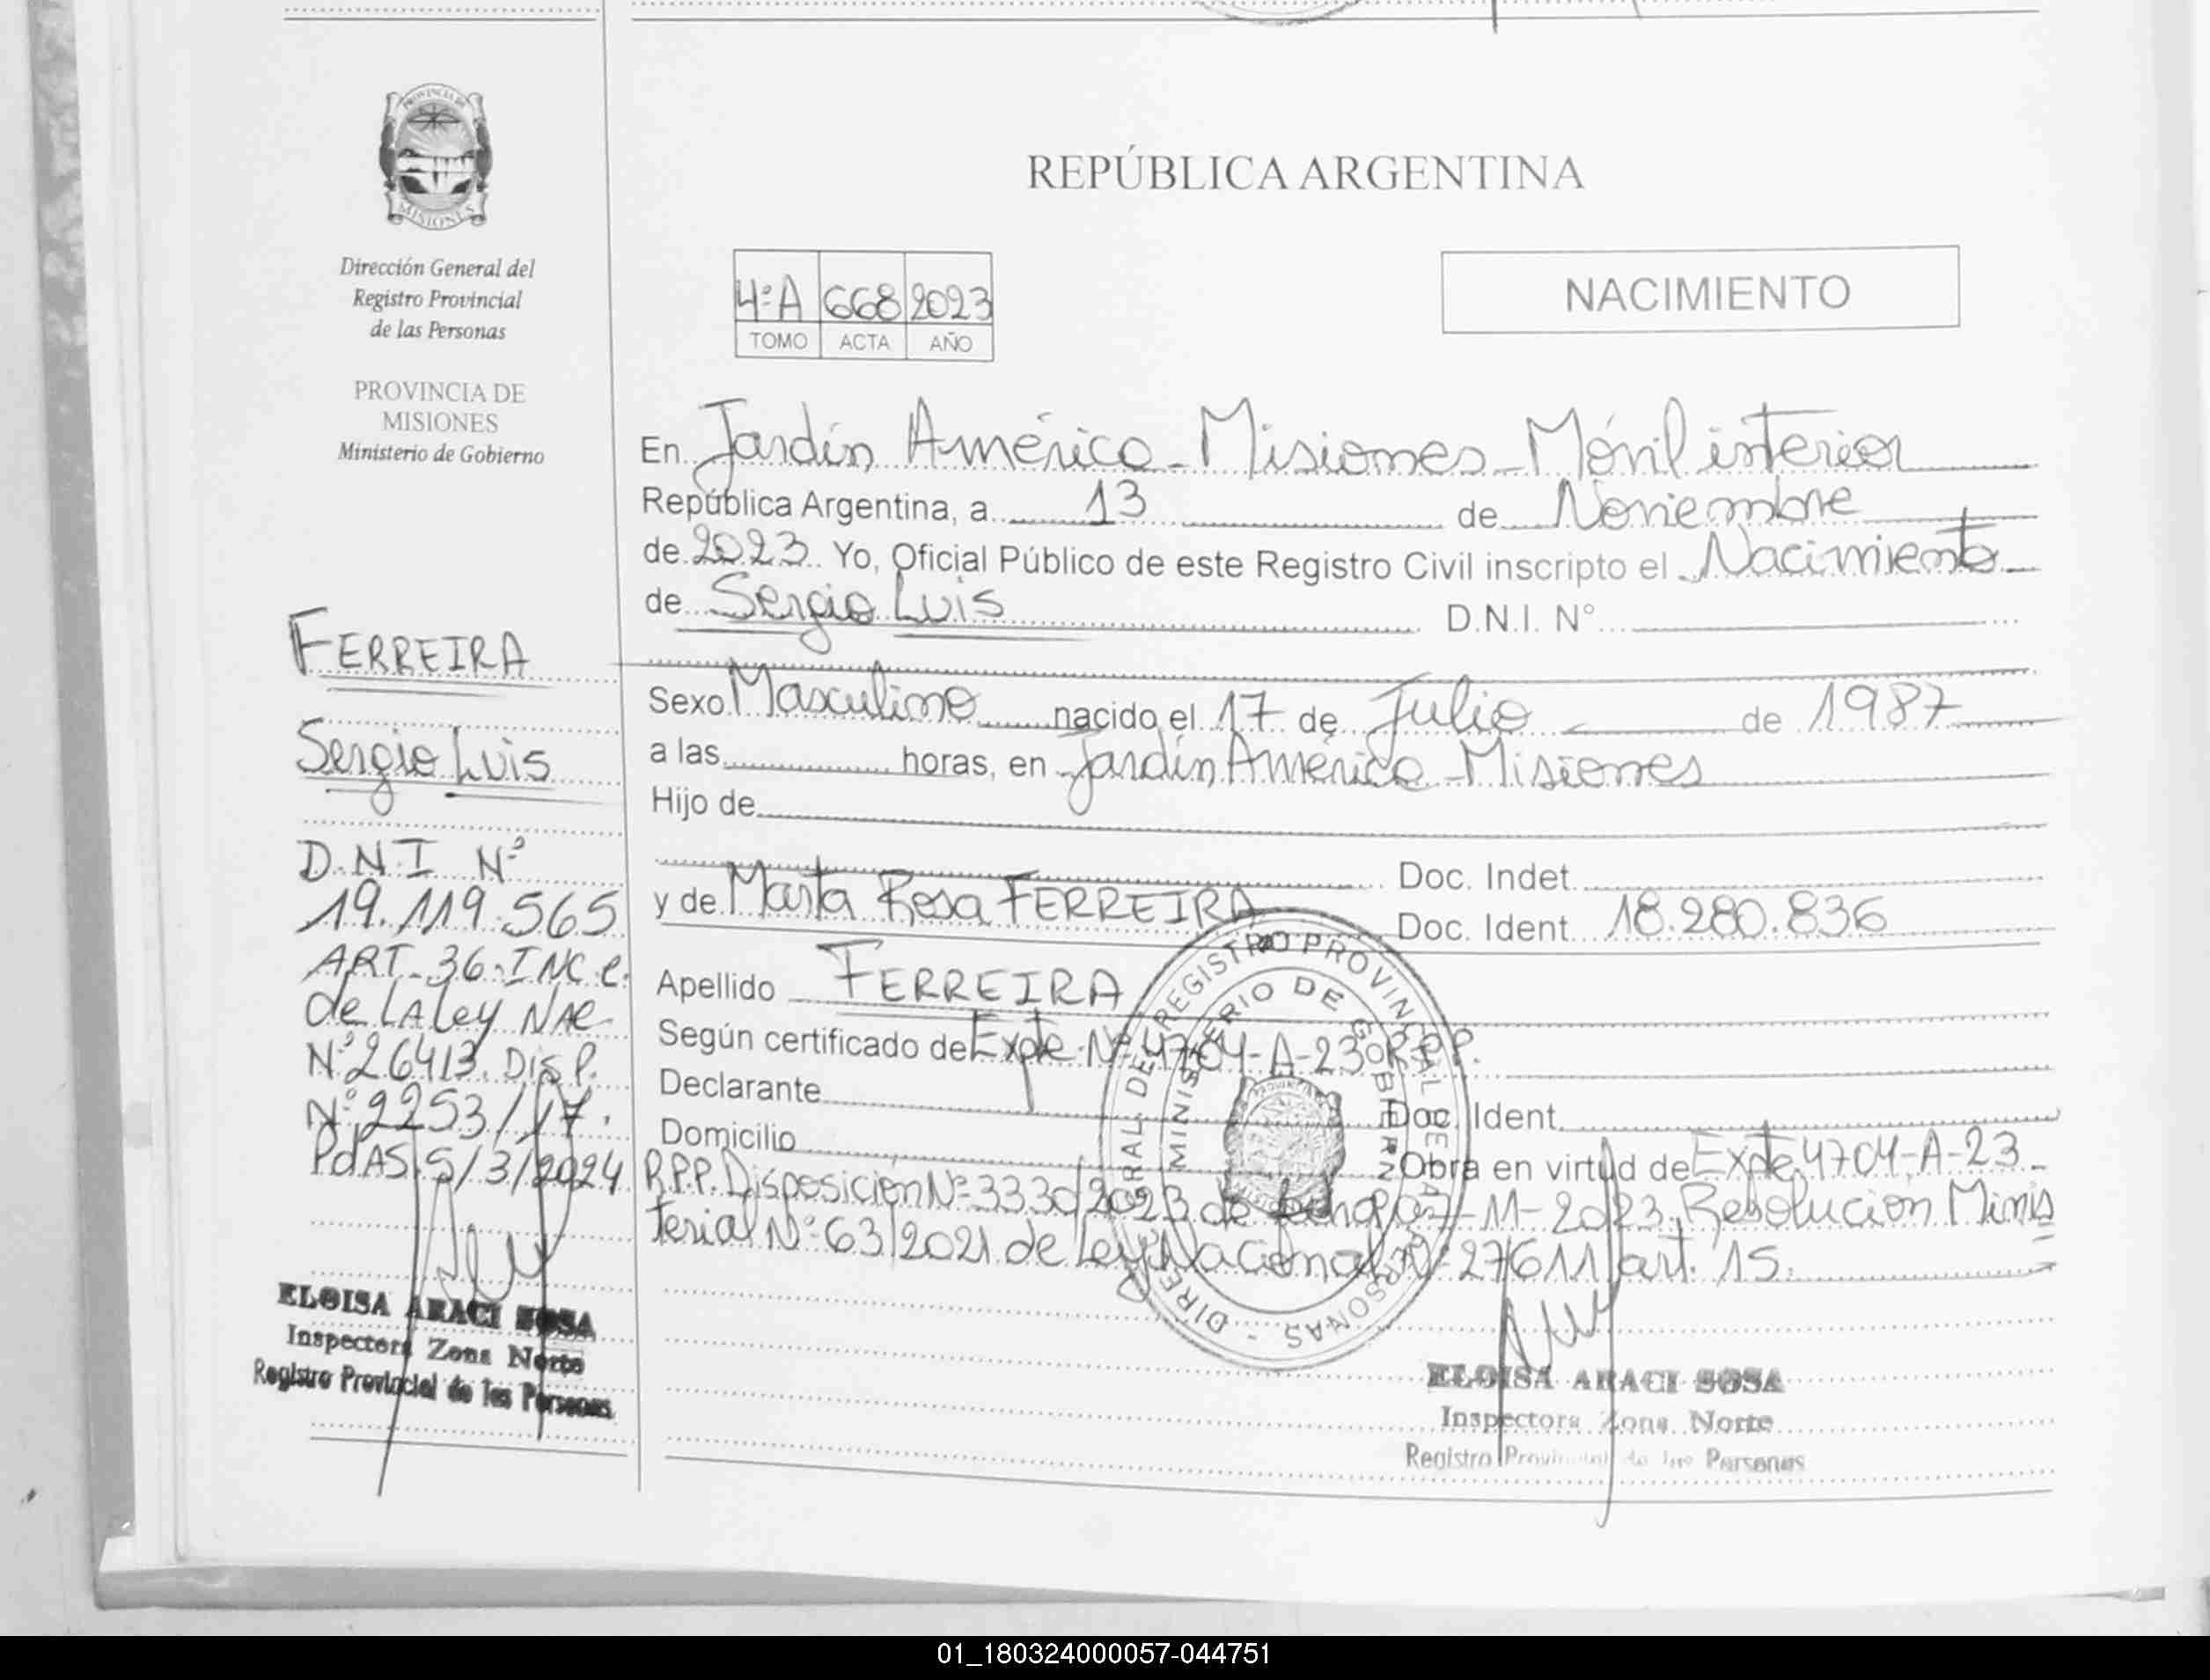 PROVINCIA DE
MISIONES
Dirección General del
Registro Provincial
de las Personas
PROVINCIA DE
MISIONES
Ministerio de Gobierno
FERREIRA
Sergio Luis
D.N.I Nº
19.119.565
ART. 36. INC c.
de LA Ley NAC
Nº 26413. DISP.
Nº 2253/17.
PdAS. 5/3/2024
ELOISA ARACI SOSA
Inspectora Zona Norte
Registro Provincial de las Personas
REPÚBLICA ARGENTINA
4º A 668 2023
TOMO ACTA AÑO
NACIMIENTO
En Jardín América - Misiones - Móvil interior
República Argentina, a 13 de Noviembre
de 2023 Yo, Oficial Público de este Registro Civil inscripto el Nacimiento
de Sergio Luis D.N.I. Nº
Sexo Masculino nacido el 17 de Julio de 1987
a las horas, en Jardín América - Misiones
Hijo de
Doc. Indet.
y de Marta Rosa FERREIRA Doc. Ident. 18.280.836
Apellido FERREIRA
Según certificado de Expte Nº 4704-A-23 R.P.P.
Declarante Doc. Ident.
Domicilio Obra en virtud de Expte 4704-A-23
R.P.P. Disposición Nº 3330/2023 de -11-2023, Resolucion Minis
terial Nº 63/2021 de Ley Nacional Nº 27611 art. 15.
DIRE RAL DEL REGISTRO PROVINCIAL DE LA PERSONAS -
MINISTERIO DE GOBIERN
ELOISA ARACI SOSA
Inspectora Zona Norte
Registro Provincial de las Personas
01_180324000057-044751